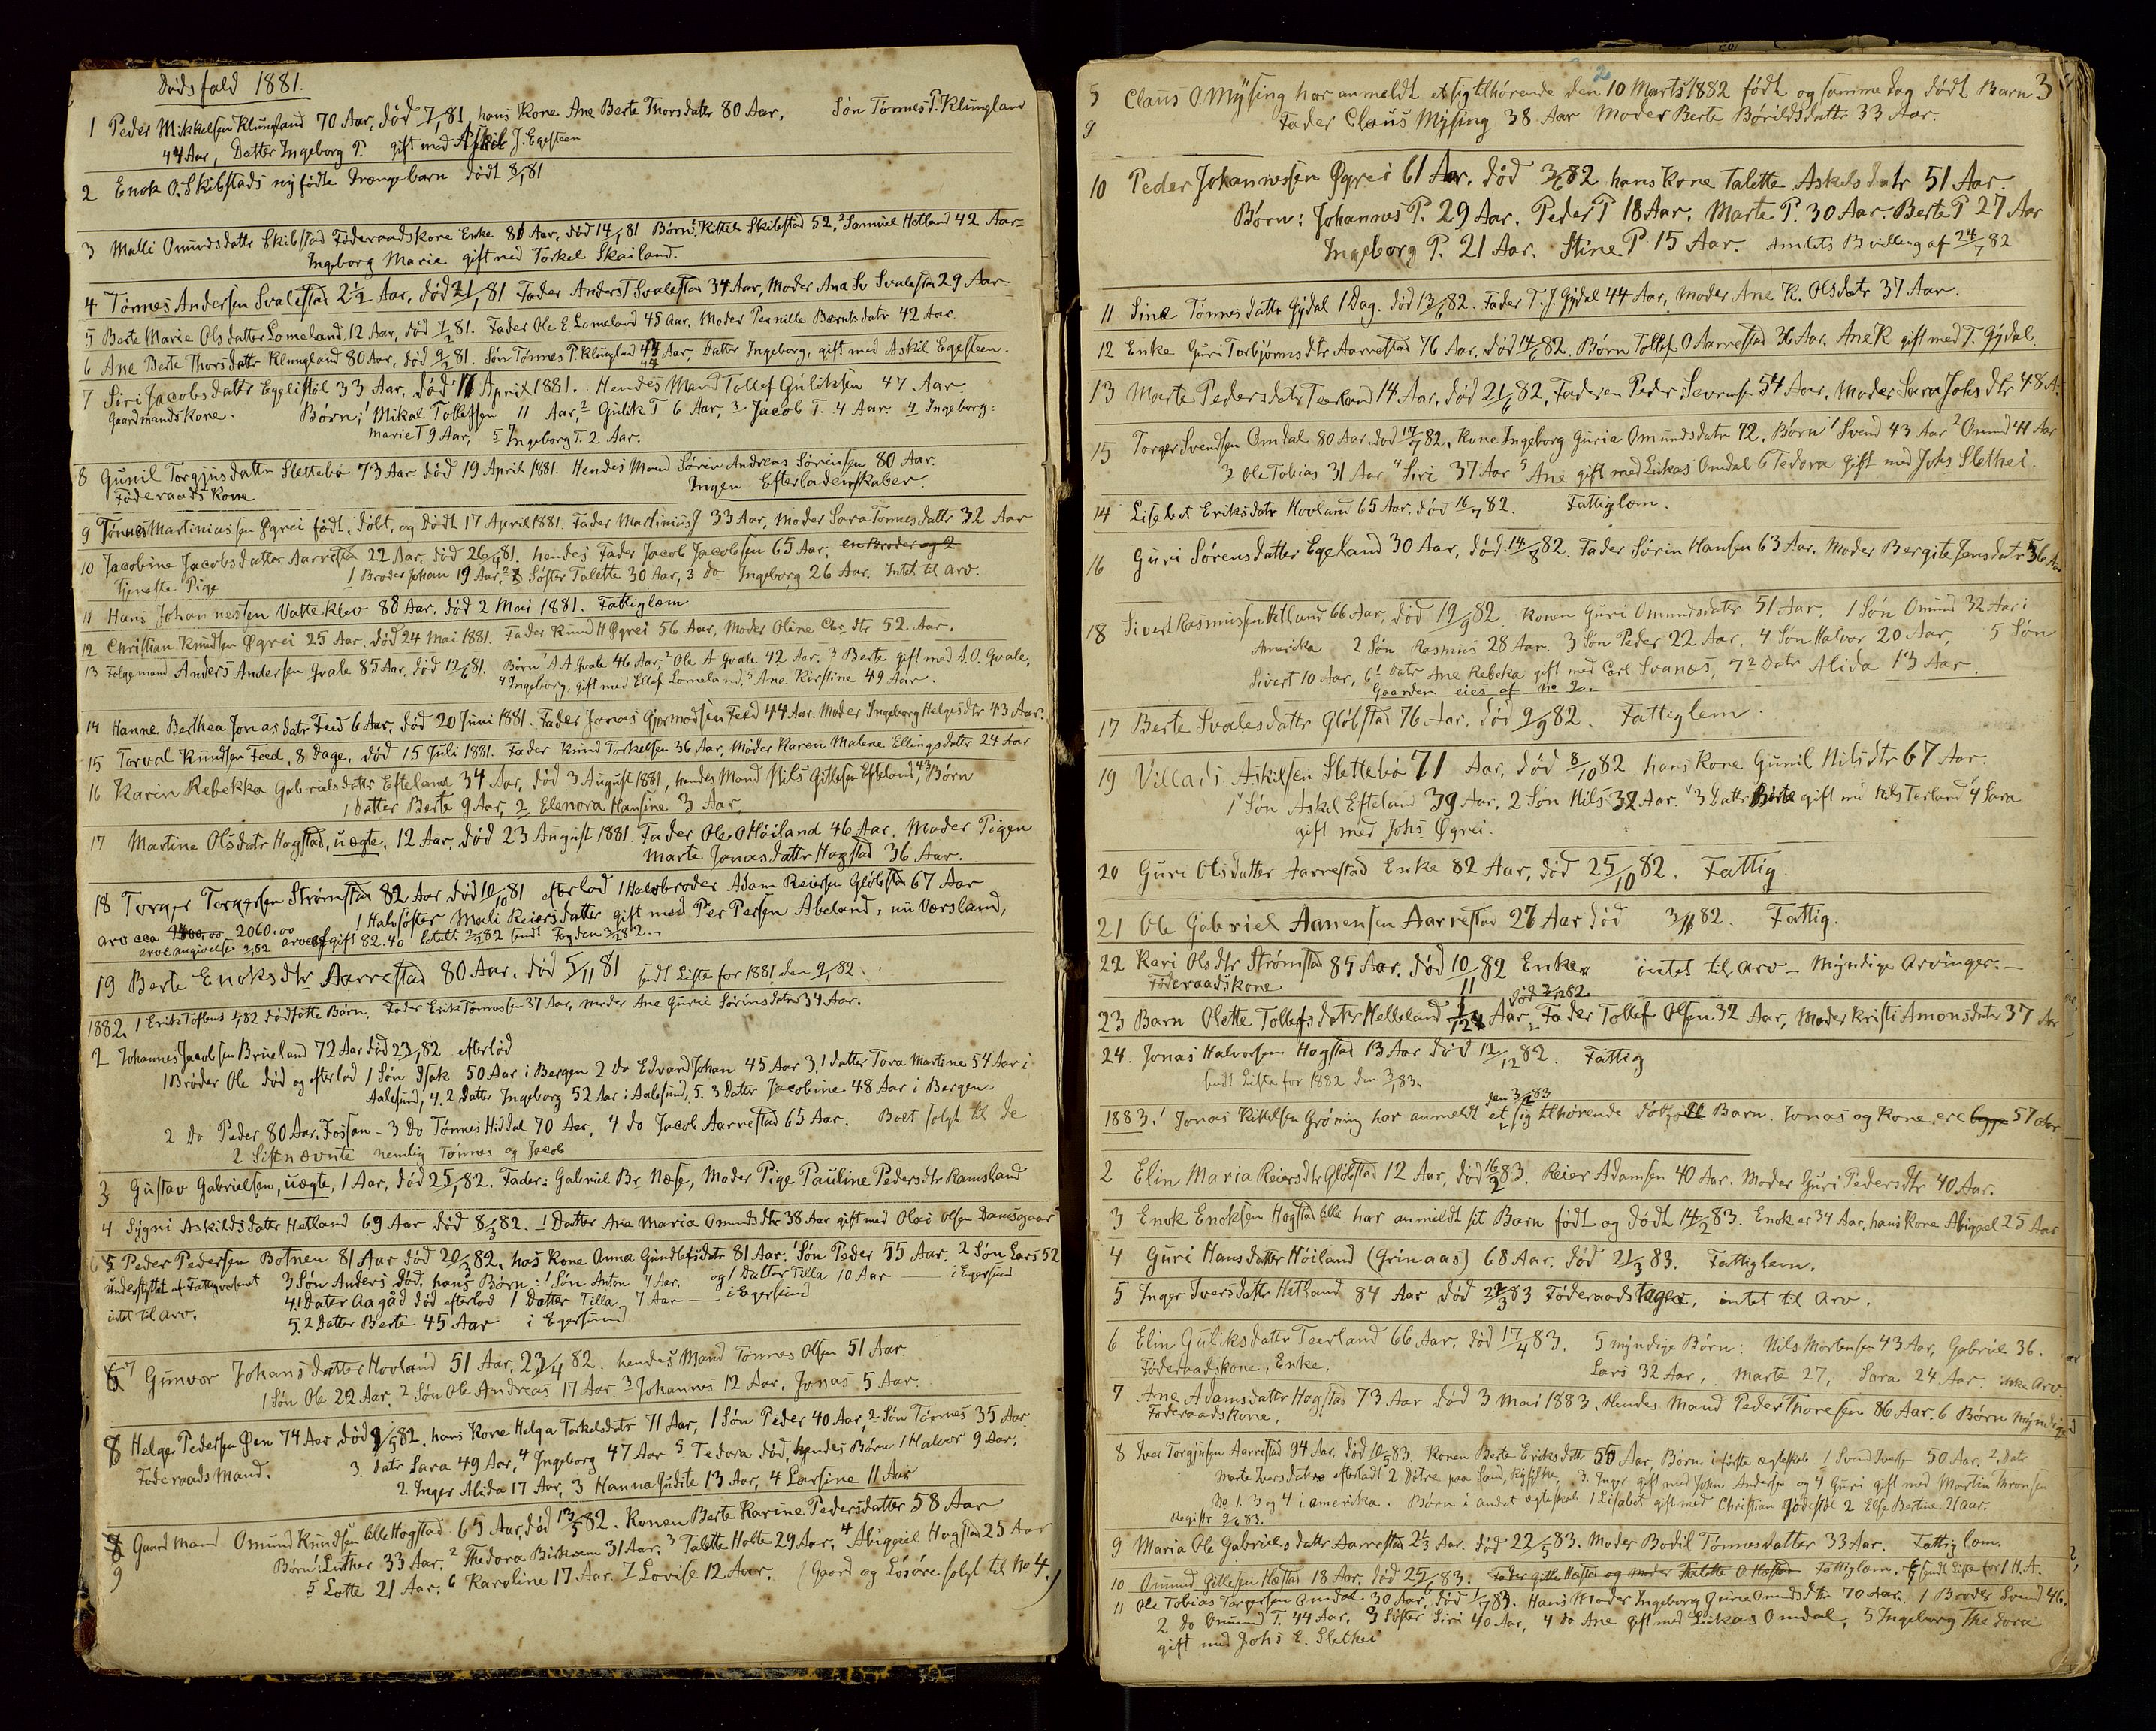 Dødsfald 1881.
1 Peder Mikkelsen Klungland 70 Aar, død 7/1 81, hans Kone Ane Berte Thorsdatr 80 Aar, Søn Tønnes P. Klungland
44 Aar, Datter Ingeborg P. gift med Askil J. Egesteen
2 Enok O. Skibstads nyfødte Drængebarn dødt 8/1 81
3 Malli Omundsdatr Skibstad Føderaadskone Enke 81 Aar, død 14/1 81 Børn: 1 Kittil Skibstad 52, 2 Samuel Hetland 42 Aar
Ingeborg Marie gift med Torkel Skailand.
4 Tønnes Andersen Svalestad 2 1/2 Aar, død 21/1 81 Fader Anders T Svalestad 34 Aar, Moder Ana Sv Svalestad 29 Aar
5 Berte Marie Olsdatter Lomeland 12 Aar, død 7/2 81. Fader Ole E. Lomeland 45 Aar, Moder Pernille Berntsdatr 42 Aar
6 Ane Berte Thorsdatr Klungland 80 Aar, død 9/2 81. Søn Tønnes P. Klungland 44 Aar, Datter Ingeborg, gift med Askil Egesteen.
7 Siri Jacobsdatter Egelistøl 33 Aar, død 11 April 1881. Hendes Mand Tollef Guliksen 47 Aar
Gaardmandskone. Børn; 1 Mikal Tollefsen 11 Aar, 2 Gulik T 6 Aar, 3 Jacob T. 4 Aar 4 Ingeborg
marie T 9 Aar, 5 Ingeborg T. 2 Aar.
8 Gunil Torgjusdatr Slettebø 73 Aar død 19 April 1881. Hendes Mand Sørin Andreas Sørensen 80 Aar.
Føderaads Kone Ingen Efterladenskaber.
9 Tønnes Martiniussen Øgrei født, døbt, og Dødt 17 April 1881. Fader Martinius J 33 Aar, Moder Sara Tønnesdatr 32 Aar
10 Jacobine Jacobsdatter Aarrestad 22 Aar, død 26/4 81, hendes Fader Jacob Jacobsen 65 Aar, en Broder og 2
Tjeneste Pige 1 Broder Johan 19 Aar, 2 Søster Talette 30 Aar, 3 do Ingeborg 26 Aar. Intet til arv.
11 Hans Johannessen Vatteklev 88 Aar, død 2 Mai 1881. Fattiglem
12 Christian Knudsen Øgrei 25 Aar, død 24 Mai 1881. Fader Knud H Øgrei 56 Aar, Moder Oline Chr. dtr 52 Aar.
13 Følgemand Anders Andersen Gvale 85 Aar, død 12/6 81. Børn 1 A A Gvale 46 Aar, 2 Ole A Gvale 42 Aar. 3 Berte gift med A.O. Gvale,
4 Ingeborg, gift med Ellef Lomeland, 5 Ane Kirstine 49 Aar.
14 Hanne Berthea Jonasdatr Feed 6 Aar, død 20 Juni 1881. Fader Jonas Gjermodsen Feed 44 Aar. Moder Ingeborg Helgesdtr 43 Aar.
15 Torval Knudsen Feed, 8 Dage, død 15 Juli 1881. Fader Knud Torkelsen 36 Aar, Moder Karen Malene Ellingsdatr 24 Aar
16 Karin Rebekka Gabrielsdatr Efteland 34 Aar, død 3 August 1881, hendes Mand Nils Gitlesen Efteland, 43, Børn
1 Datter Berte 9 Aar, 2 Elenora Hansine 3 Aar.
17 Martine Olsdatr Hogstad, uægte, 12 Aar, død 23 August 1881. Fader Ole O Høiland 46 Aar. Moder Pigen
Marte Jonasdatr Hogstad 36 Aar.
18 Torger Torgersen Strømstad 82 Aar død 10/10 81 efterlod 1 Halvbroder Adam Reiersen Gløbstad 67 Aar
1 Halvsøster Mali Reiersdatter gift med Per Persen Abeland, nu Værsland,
arv cca 2060.00
arveangivelse 2/2 82 arveafgift 82.40 betalt 3/2 82 sendt Fogden 3/2 82.
19 Berte Enoksdtr Aarrestad 80 Aar, død 5/11 81 sendt Liste for 1881 den 9/1 82
1882. 1 Erik Toftens 1/1 82 dødfødte Børn. Fader Erik Tønnesen 37 Aar, moder Ane Gurie Sørinsdatr 34 Aar.
2 Johannes Jacobsen Brueland 72 Aar død 23/1 82 efterlod
1 Brøder Ole død og efterlod 1 Søn Isak 50 Aar i Bergen 2 do Edvard Johan 45 Aar 3. 1 datter Tora Martine 54 Aar i
Aalesund, 4. 2 Datter Ingeborg 52 Aar i Aalesund, 5. 3 Datter Jacobine 48 Aar i Bergen.
2 do Peder 80 Aar, Fossan - 3 do Tønnes Hiddal 70 Aar, 4 do Jacob Aarrestad 65 Aar. Boet solgt til de
2 Sistnævnte nemlig Tønnes og Jacob
3 Gustav Gabrielsen, uægte, 1 Aar, død 25/1 82. Fader: Gabriel Br. Næse, Moder Pige Pauline Pedersdtr Ramsland
4 Sygni Askildsdatr Hetland 69 Aar død 8/3 82. 1 Datter Ane Maria Omundsdtr 38 Aar gift med Olai Olsen Damsgaard
5 Peder Pedersen Botnen 81 Aar død 20/3 82, has Kone Anna Gundlefsdatr 81 Aar. 1 Søn Peder 55 Aar. 2 Søn Lars 52
understyttet af Fattigvæsenet 3 Søn Anders død. hans Børn: 1 Søn Anton 7 Aar. og 1 Datter Tilla 10 Aar i Egersund
intet til arv. 4. 1 Dater Aagåd død efterlod 1 Datter Tilla 7 Aar i Egersund
5. 2 Datter Berte 45 Aar i Egersund
7 Gunvor Johansdatter Hovland 51 Aar, 23/4 82. hendes Mand Tønnes Olsen 51 Aar
1 Søn Ole 22 Aar. 2 Søn Ole Andreas 17 Aar. 3 Johannes 12 Aar, Jonas 5 Aar.
8 Helge Pedersen Øen 74 Aar død 9/5 82. hans Kone Helga Torkelsdatr 71 Aar, 1 Søn Peder 40 Aar, 2 Søn Tønnes 35 Aar
Føderaads Mand. 3. datr Sara 49 Aar, 4 Ingeborg 47 Aar 5 Tedora død, hendes Børn 1 Halvor 9 Aar,
2 Inger Alida 17 Aar, 3 Hanna Judite 13 Aar, 4 Larsine 11 Aar
9 Gaardmand Omund Knudsen Lille Hogstad 65 Aar, død 13/5 82. Konen Berte Karine Pedersdatter 58 Aar
Børn: 1 Luther 33 Aar. 2 Thedora Birkrem 31 Aar. 3 Talette Holte 29 Aar. 4 Abigael Hogstad 25 Aar
5 Lotte 21 Aar. 6 Karoline 17 Aar 7 Lovise 12 Aar. (Gaard og Løsøre solgt til No 4.)
3
9 Claus O. Mysing har anmeldt et sig tilhørende den 10 Marts 1882 født og samme dag dødt Barn
Fader Claus Mysing 38 Aar Moder Berte Bórildsdatr 33 Aar.
10 Peder Johannessen Øgrei 61 Aar. død 3/6 82 hans Kone Talette Askilsdatr 51 Aar.
Børn: Johannes P. 29 Aar. Peder P 18 Aar. Marte P. 30 Aar. Berte P 27 Aar
Ingeborg P. 21 Aar. Stine P 15 Aar. Amtets Bevilling af 24/7 82
11 Sine Tønnesdatr Gydal 1 Dag. død 13/6 82. Fader T. J. Gydal 44 Aar, Moder Ane K. Olsdatr 37 Aar.
12 Enke Guri Torbjørnsdtr Aarrestad 76 Aar. død 14/6 82. Børn Tollef O Aarrestad 36 Aar. Ane K gift med T. Gydal.
13 Marte Pedersdatr Teerland 14 Aar, død 21/6 82, Faderen Peder Severinsen 54 Aar, Moder Sara Johsdtr 48 A.
15 Torger Svendsen Omdal 80 Aar. død 17/7 82. Kone Ingeborg Guria Omundsdatr 72. Børn 1 Svend 43 Aar 2 Omund 41 Aar
3 Ole Tobias 31 Aar 4 Siri 37 Aar 5 Ane gift med Lukas Omdal 6 Tedora gift med Johs Slethei.
14 Lisebet Eriksdatr Hovland 65 Aar, død 16/7 82. Fattiglem.
16 Guri Sørensdatter Egeland 30 Aar, død 14/8 82. Fader Sørin Hansen 63 Aar. Moder Bergite Jensdatr 56 Aar
18 Sivert Rasmussen Hetland 66 Aar, død 19/9 82. Konen Guri Omundsdater 51 Aar 1 Søn Omund 32 Aar i
Amerika 2 Søn Rasmus 28 Aar. 3 Søn Peder 22 Aar, 4 Søn Halvor 20 Aar, 5 Søn
Sivert 10 Aar, 6 1 Datr Ane Rebeka gift med Carl Svanæs, 7 2 Datr Alida 13 Aar.
Gaarden eies af No 2.
17 Berte Svalesdatr Gløbstad 76 Aar. død 9/9 82. Fattiglem.
19 Villads Askilsen Slettebø 71 Aar, død 8/10 82 hans Kone Gunil Nilsdtr 67 Aar.
1 Søn Askel Efteland 39 Aar. 2 Søn Nils 32 Aar. 3 Datr Berte gift m Nils Terland 4 Sara
gift med Johs Øgrei.
20 Guri Olsdatter Aarrestad Enke 82 Aar, død 25/10 82. Fattig
21 Ole Gabriel Aanensen Aarrestad 27 Aar død 3/11 82. Fattig.
22 Kari Olsdtr Strømstad 85 Aar, død 10/11 82 Enke. intet til arv - Myndige Arvinger.
Føderaadskone
død 2/12 82.
23 Barn Olette Tollefsdatr Helleland Aar, Fader Tollef Olsen 32 Aar, Moder Kristi Amonsdatr 37 Aar
24. Jonas Halvorsen Hogstad 13 Aar død 12/12 82. Fattig
sendt Liste for 1882 den 3/1 83.
den 3/1 83
1883. 1 Jonas Kittilsen Grøning har anmeldt et sig tilhørende dødfødt Barn. Jonas og Kone ere begge 57 Aar
2 Elin Maria Reiersdtr Gløbstad 12 Aar, død 16/2 83. Reier Adamsen 40 Aar. Moder Guri Pedersdtr 40 Aar.
3 Enok Enoksen Hogstad lille har anmeldt sit Barn født og dødt 14/2 83. Enok er 34 Aar, hans Kone Abigael 25 Aar
4 Guri Hansdatter Høiland (Grinaas) 68 Aar. død 21/3 83. Fattiglem.
5 Inger Iversdatr Hetland 84 Aar død 22/3 83 Føderaadstager, intet til arv.
6 Elin Guliksdater Teerland 66 Aar. død 17/4 83. 5 myndige Børn: Nils Mortensen 43 Aar, Gabriel 36.
Føderaadskone, Enke, Lars 32 Aar, Marte 27, Sara 24 Aar. ikke Arv
7 Ane Adamsdatter Hogstad 73 Aar død 3 Mai 1883. Hendes Mand Peder Thoresen 86 Aar. 6 Børn Myndige
Føderaadskone.
8 Iver Torgjusen Aarrestad 94 Aar, død 10/5 83. Konen Berte Eriksdatr 50 Aar, Børn i første ægteskab 1 Svend Iversen 50 Aar. 2 Datr
Marte Iversdatr efterladt 2 Døtre paa Sand, Ryfylke, 3. Inger gift med John Andersen og 4 Guri gift med Martin Thronsen
No 1. 3 og 4 i amerika. Børn i andet ægteskab 1 Lisabet gift med Christian Gjedestøl 2 Else Bertine 21 aar.
Registr 9/6 83.
9 Maria Ole Gabrielsdatr Aarrestad 2 1/2 Aar. død 22/5 83. Moder Bodil Tønnesdatter 33 Aar. Fattiglem.
10 Omund Gitlesen Hæstad 18 Aar. død 25/6 83. Fader Gitle Hæstad og moder Talette O Hæstad Fattiglem. sendt Liste for 1 H.A.
11 Ole Tobias Torgersen Omdal 30 Aar, død 1/7 83. Hans Moder Ingeborg Gurie Omundsdtr 70 Aar. 1 Broder Svend 46.
2 do Omund T. 44 Aar. 3 Søster Siri 40 Aar, 4 do Ane gift med Lukas Omdal, 5 Ingeborg Thedora
gift med Johs E. Slethei